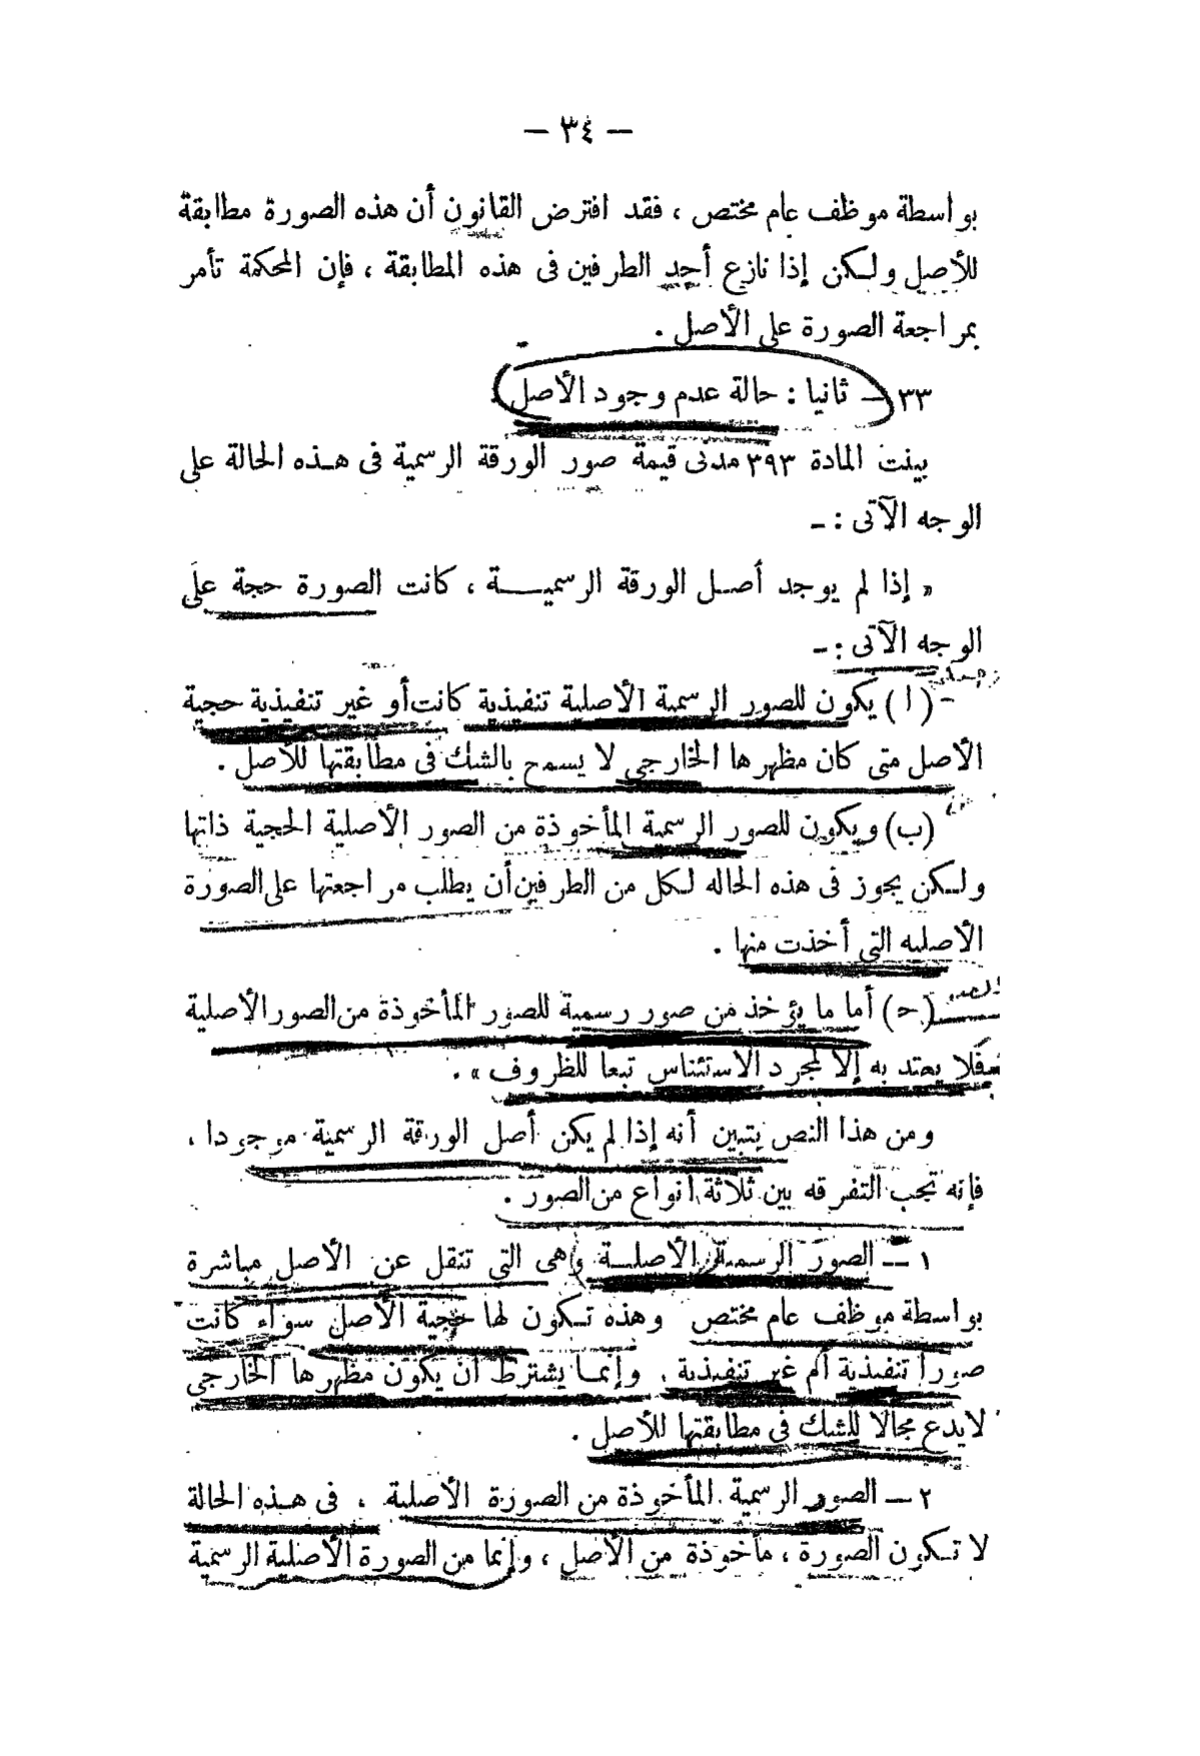 — ٣٤ —
بواسطة موظف عام مختص ، فقد افترض القانون أن هذه الصورة مطابقة
للأصل ولكن إذا نازع أحد الطرفين فى هذه المطابقة ، فإن المحكمة تأمر
بمراجعة الصورة على الأصل .
٣٣ — ثانيا : حالة عدم وجود الأصل .
بينت المادة ٣٩٣ مدنى قيمة صور الورقة الرسمية فى هذه الحالة على
الوجه الآتى : ـ
« إذا لم يوجد أصل الورقة الرسمية ، كانت الصورة حجة على
الوجه الآتى : ـ
( ا ) يكون للصور الرسمية الأصلية تنفيذية كانت أو غير تنفيذية حجية
الأصل متى كان مظهرها الخارجى لا يسمح بالشك فى مطابقتها للأصل .
(ب) ويكون للصور الرسمية المأخوذة من الصور الأصلية الحجية ذاتها
ولكن يجوز فى هذه الحاله لكل من الطرفين أن يطلب مراجعتها على الصورة
الأصليه التى أخذت منها .
(ح) أما ما يؤخذ من صور رسمية للصور المأخوذة من الصور الأصلية
فلا يعتد به إلا لمجرد الاستئناس تبعا للظروف » .
ومن هذا النص يتبين أنه إذا لم يكن أصل الورقة الرسمية موجودا ،
فإنه تجب التفرقه بين ثلاثة أنواع من الصور .
١ — الصور الرسمية الأصلية وهى التى تنقل عن الأصل مباشرة
بواسطة موظف عام مختص وهذه تكون لها حجية الأصل سواء كانت
صورا تنفيذية أم غير تنفيذية ، وإنما يشترط أن يكون مظهرها الخارجى
لا يدع مجالا للشك فى مطابقتها للأصل .
٢ — الصور الرسمية المأخوذة من الصورة الأصلية ، فى هذه الحالة
لا تكون الصورة ، مأخوذة من الأصل ، وإنما من الصورة الأصلية الرسمية